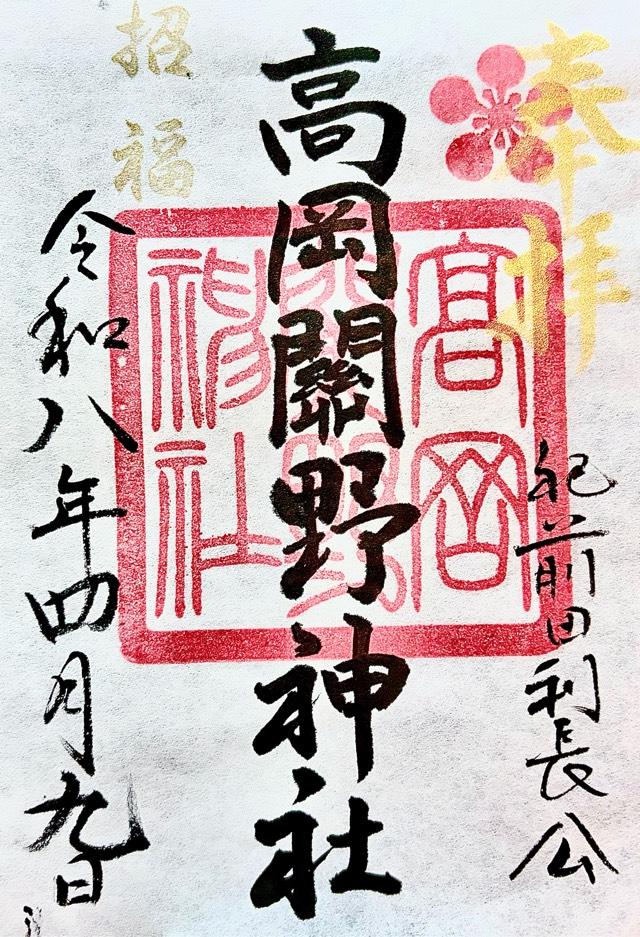 奉拝
祀前田利長公
高岡關野神社
高岡關野神社
招福
令和八年四月九日